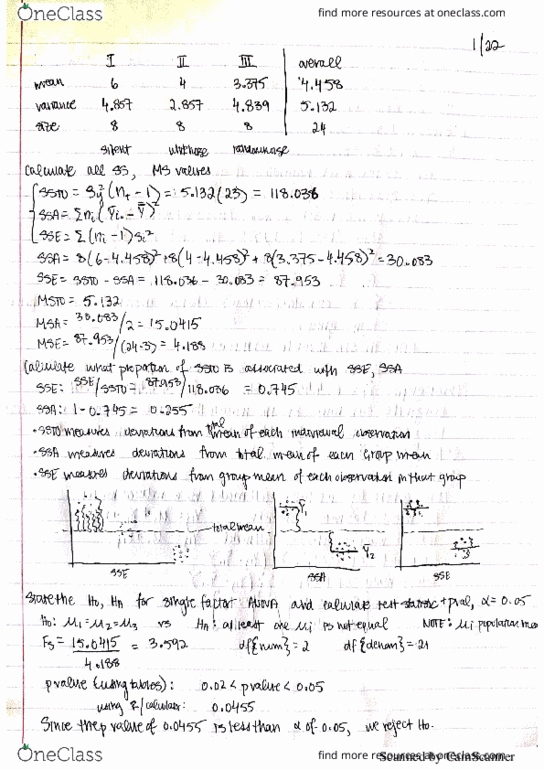 OneClass
find more resources at oneclass.com
1/22
I II III overall
mean 6 4 3.375 4.458
variance 4.857 2.857 4.839 5.132
size 8 8 8 24
silent whitnoise randomnoise
Calculate all SS, MS values
SSTO = Sy²(nT - 1) = 5.132(23) = 118.036
SSA = Σni(Ȳi. - Ȳ)²
SSE = Σ(ni - 1)si²
SSA = 8(6-4.458)² + 8(4-4.458)² + 8(3.375-4.458)² = 30.083
SSE = SSTO - SSA = 118.036 - 30.083 = 87.953
MSTO = 5.132
MSA = 30.083/2 = 15.0415
MSE = 87.953/(24-3) = 4.188
Calculate what proportion of SSTO is associated with SSE, SSA
SSE: SSE/SSTO = 87.953/118.036 = 0.745
SSA: 1-0.745 = 0.255
• SSTO measures deviations from total mean of each individual observation
• SSA measures deviations from total mean of each group mean
• SSE measures deviations from group mean of each observation in that group
total mean
Ȳ1
Ȳ2
SSE SSA SSE
State the H0, HA for single factor ANOVA and calculate test statistic + pval, α = 0.05
H0: μ1 = μ2 = μ3 vs HA: at least one μi is not equal NOTE: μi population mean
Fs = 15.0415 = 3.592 df{num} = 2 df{denom} = 21
4.188
pvalue (using tables): 0.02 < pvalue < 0.05
using R/calculator: 0.0455
Since the p value of 0.0455 is less than α of 0.05, we reject H0.
OneClass
find more resources at oneclass.com
Scanned by CamScanner